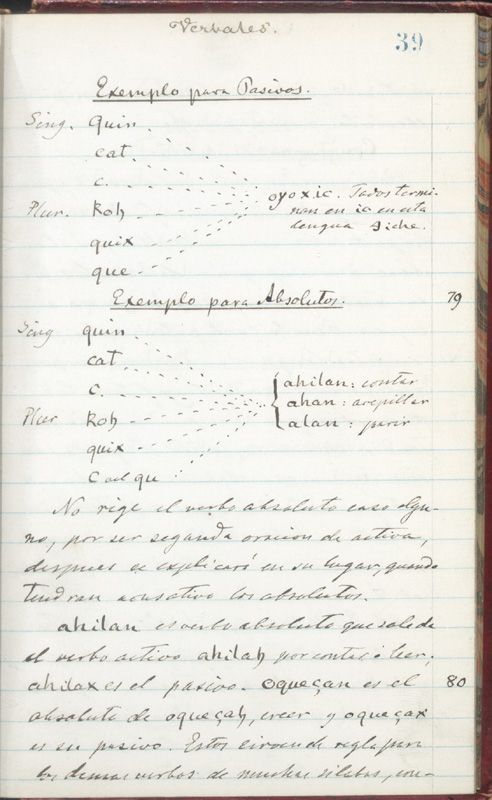 Verbales.
39
Exemplo para Pasivos.
Sing. quin
cat
c.
oyoxic. Todos termi-
nan en ic en esta
lengua 4iche.
Plur. koh
quix
que
Exemplo para Absolutos. 79
Sing quin
cat
c.
ahilan: contar
ahan: acepillar
alan: parir
Plur koh
quix
c vel que
No rige el verbo absoluto caso algu-
no, por ser segunda oracion de activa,
despues se explicará en su lugar, quando
tendran acusativo los absolutos.
ahilan es verbo absoluto que sale de
el verbo activo ahilah por contar ó leer;
ahilax es el pasivo. Oqueçan es el 80
absoluto de oqueçah, creer y oqueçax
es su pasivo. Estos sirven de regla para
los demas verbos de muchas silabas, con-